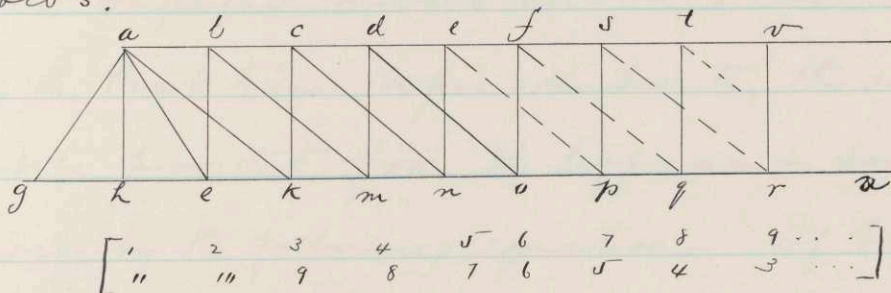 a b c d e f s t v
g h e k m n o p q r x
[1 2 3 4 5 6 7 8 9 . . . .
" "' 9 8 7 6 5 4 3 . . . .]